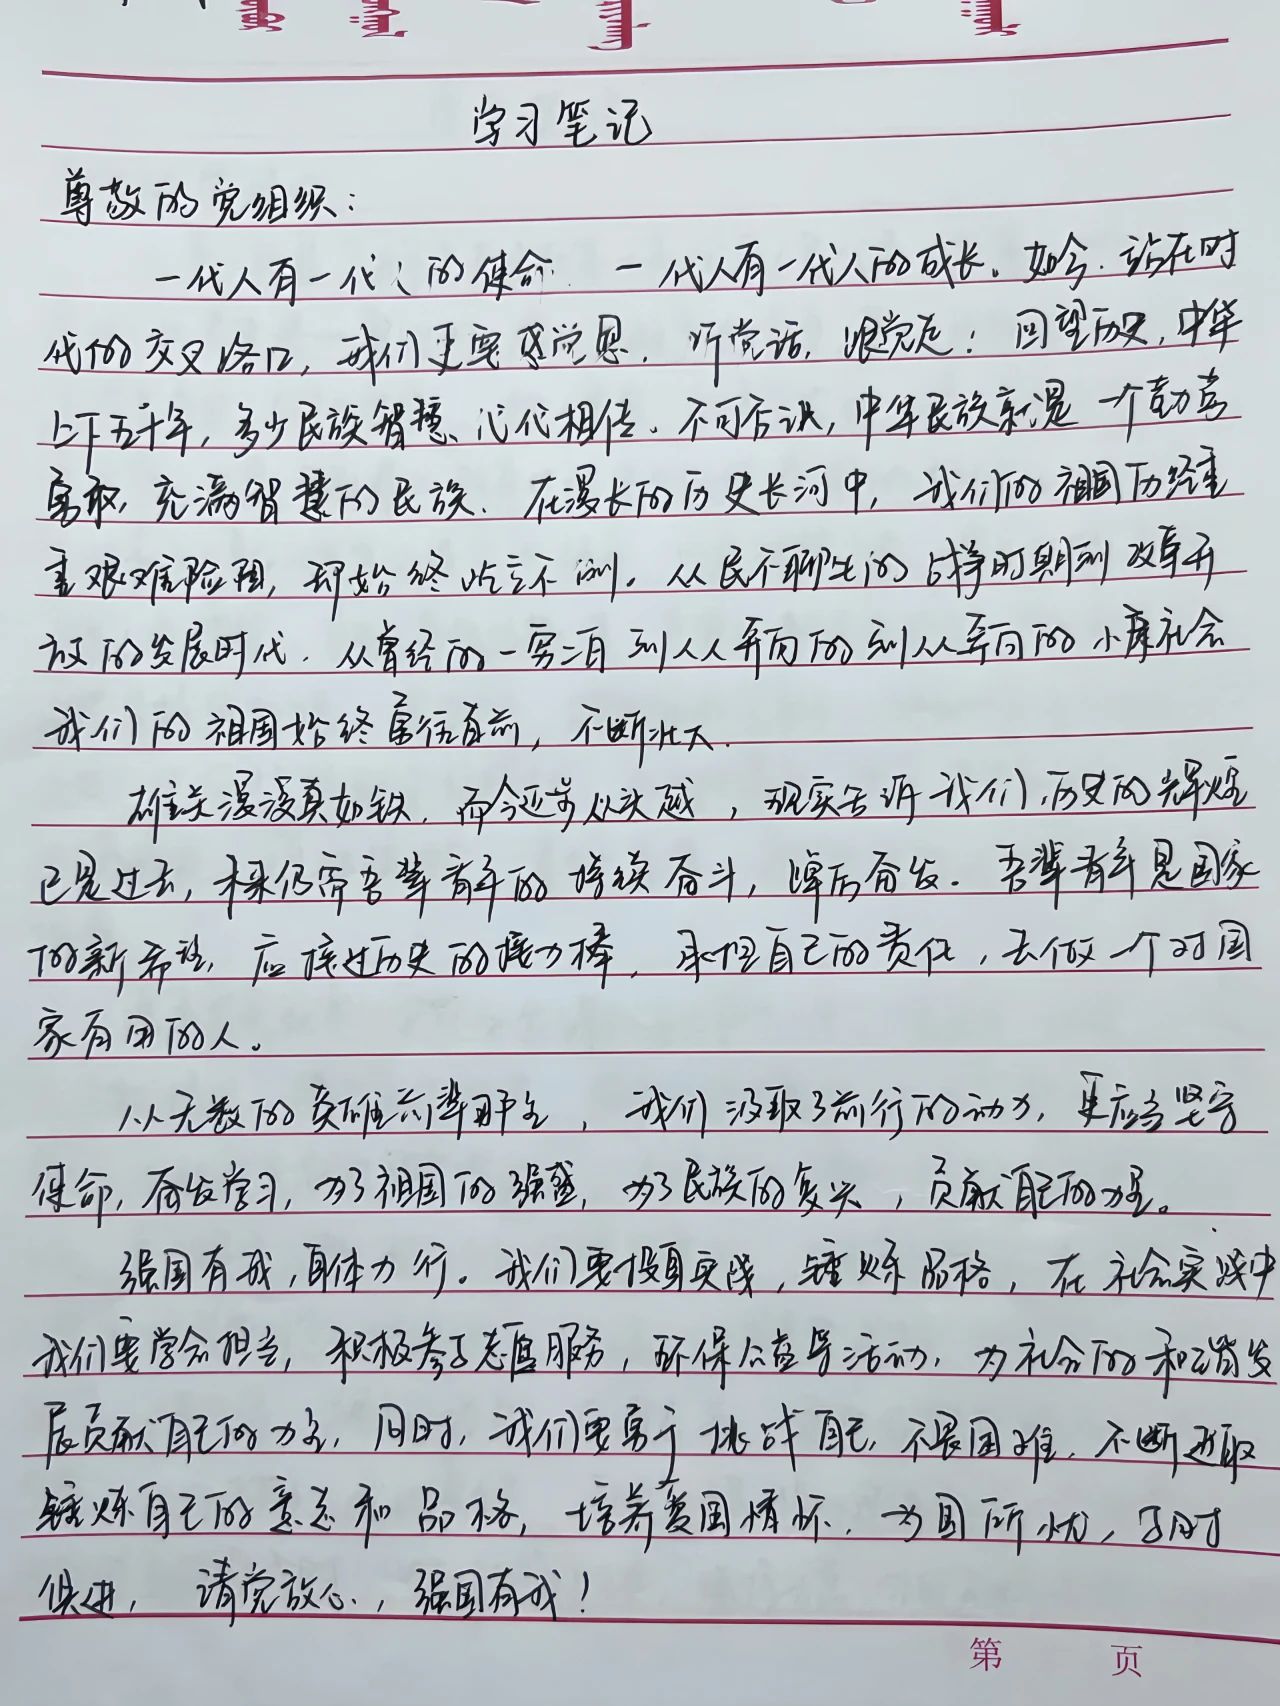 学习笔记
尊敬的党组织：
一代人有一代人的使命，一代人有一代人的成长。如今，站在时
代的交叉路口，我们更要感党恩，听党话，跟党走！回望历史，中华
上下五千年，多少民族智慧、代代相传。不可否认，中华民族就是一个勤劳
勇敢，充满智慧的民族。在漫长的历史长河中，我们的祖国历经重
重艰难险阻，却始终屹立不倒。从民不聊生的战争时期到改革开
放的发展时代，从曾经的一穷二白到人人奔向的到人人奔向的小康社会
我们的祖国始终勇往直前，不断壮大。
雄关漫漫真如铁，而今迈步从头越，现实告诉我们，历史的辉煌
已是过去，未来仍需吾辈青年的持续奋斗，踔厉奋发。吾辈青年是国家
的新希望，应接过历史的接力棒，承担自己的责任，去做一个对国
家有用的人。
从无数的英雄前辈那里，我们汲取了前行的动力，更应当坚守
使命，奋发学习，为了祖国的强盛，为了民族的复兴，贡献自己的力量。
强国有我，身体力行。我们要投身实践，锤炼品格，在社会实践中
我们要学会担当，积极参与志愿服务，环保公益等活动，为社会的和谐发
展贡献自己的力量，同时，我们要勇于挑战自己，不畏困难，不断进取
锤炼自己的意志和品格，培养爱国情怀，为国所忧，与时
俱进，请党放心，强国有我！
第 页